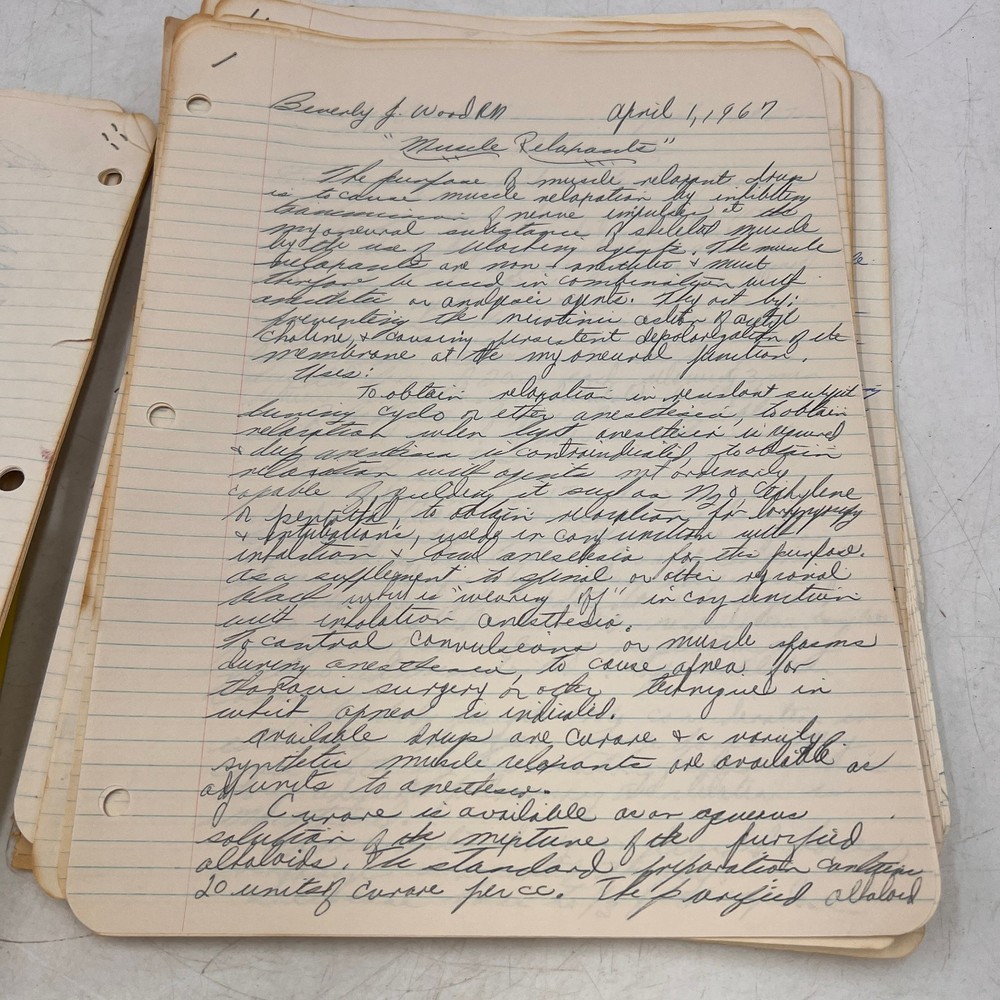 1
Beverly J. Wood RN April 1, 1967
"Muscle Relaxants"
The purpose of muscle relaxant drugs
is to cause muscle relaxation by inhibiting
transmission of nerve impulses at the
myoneural substance of skeletal muscle
by the use of blocking agents. The muscle
relaxants are non-anesthetic & must
therefore be used in combination with
anesthetic or analgesic agents. They act by:
preventing the nicotinic action of acetyl
choline, & causing persistent depolarization of the
membrane at the myoneural junction.
Uses:
To obtain relaxation in resistant subject
during cyclo or ether anesthesia, to obtain
relaxation when light anesthesia is required
& deep anesthesia is contraindicated, to obtain
relaxation with agents not ordinarily
capable of yielding it such as N2O, ethylene
or pentothal, to obtain relaxation for
& intubations, using in conjunction with
intubation & local anesthesia for this purpose.
as a supplement to spinal or other regional
block which is "wearing off" in conjunction
with inhalation anesthesia.
To control convulsions or muscle spasms
during anesthesia, to cause apnea for
thoracic surgery or other techniques in
which apnea is indicated.
Available drugs are curare & a variety
synthetic muscle relaxants are available as
adjuncts to anesthesia.
Curare is available as an aqueous
solution of the mixture of the purified
alkaloids. The standard preparation contains
20 units of curare per cc. The purified alkaloid